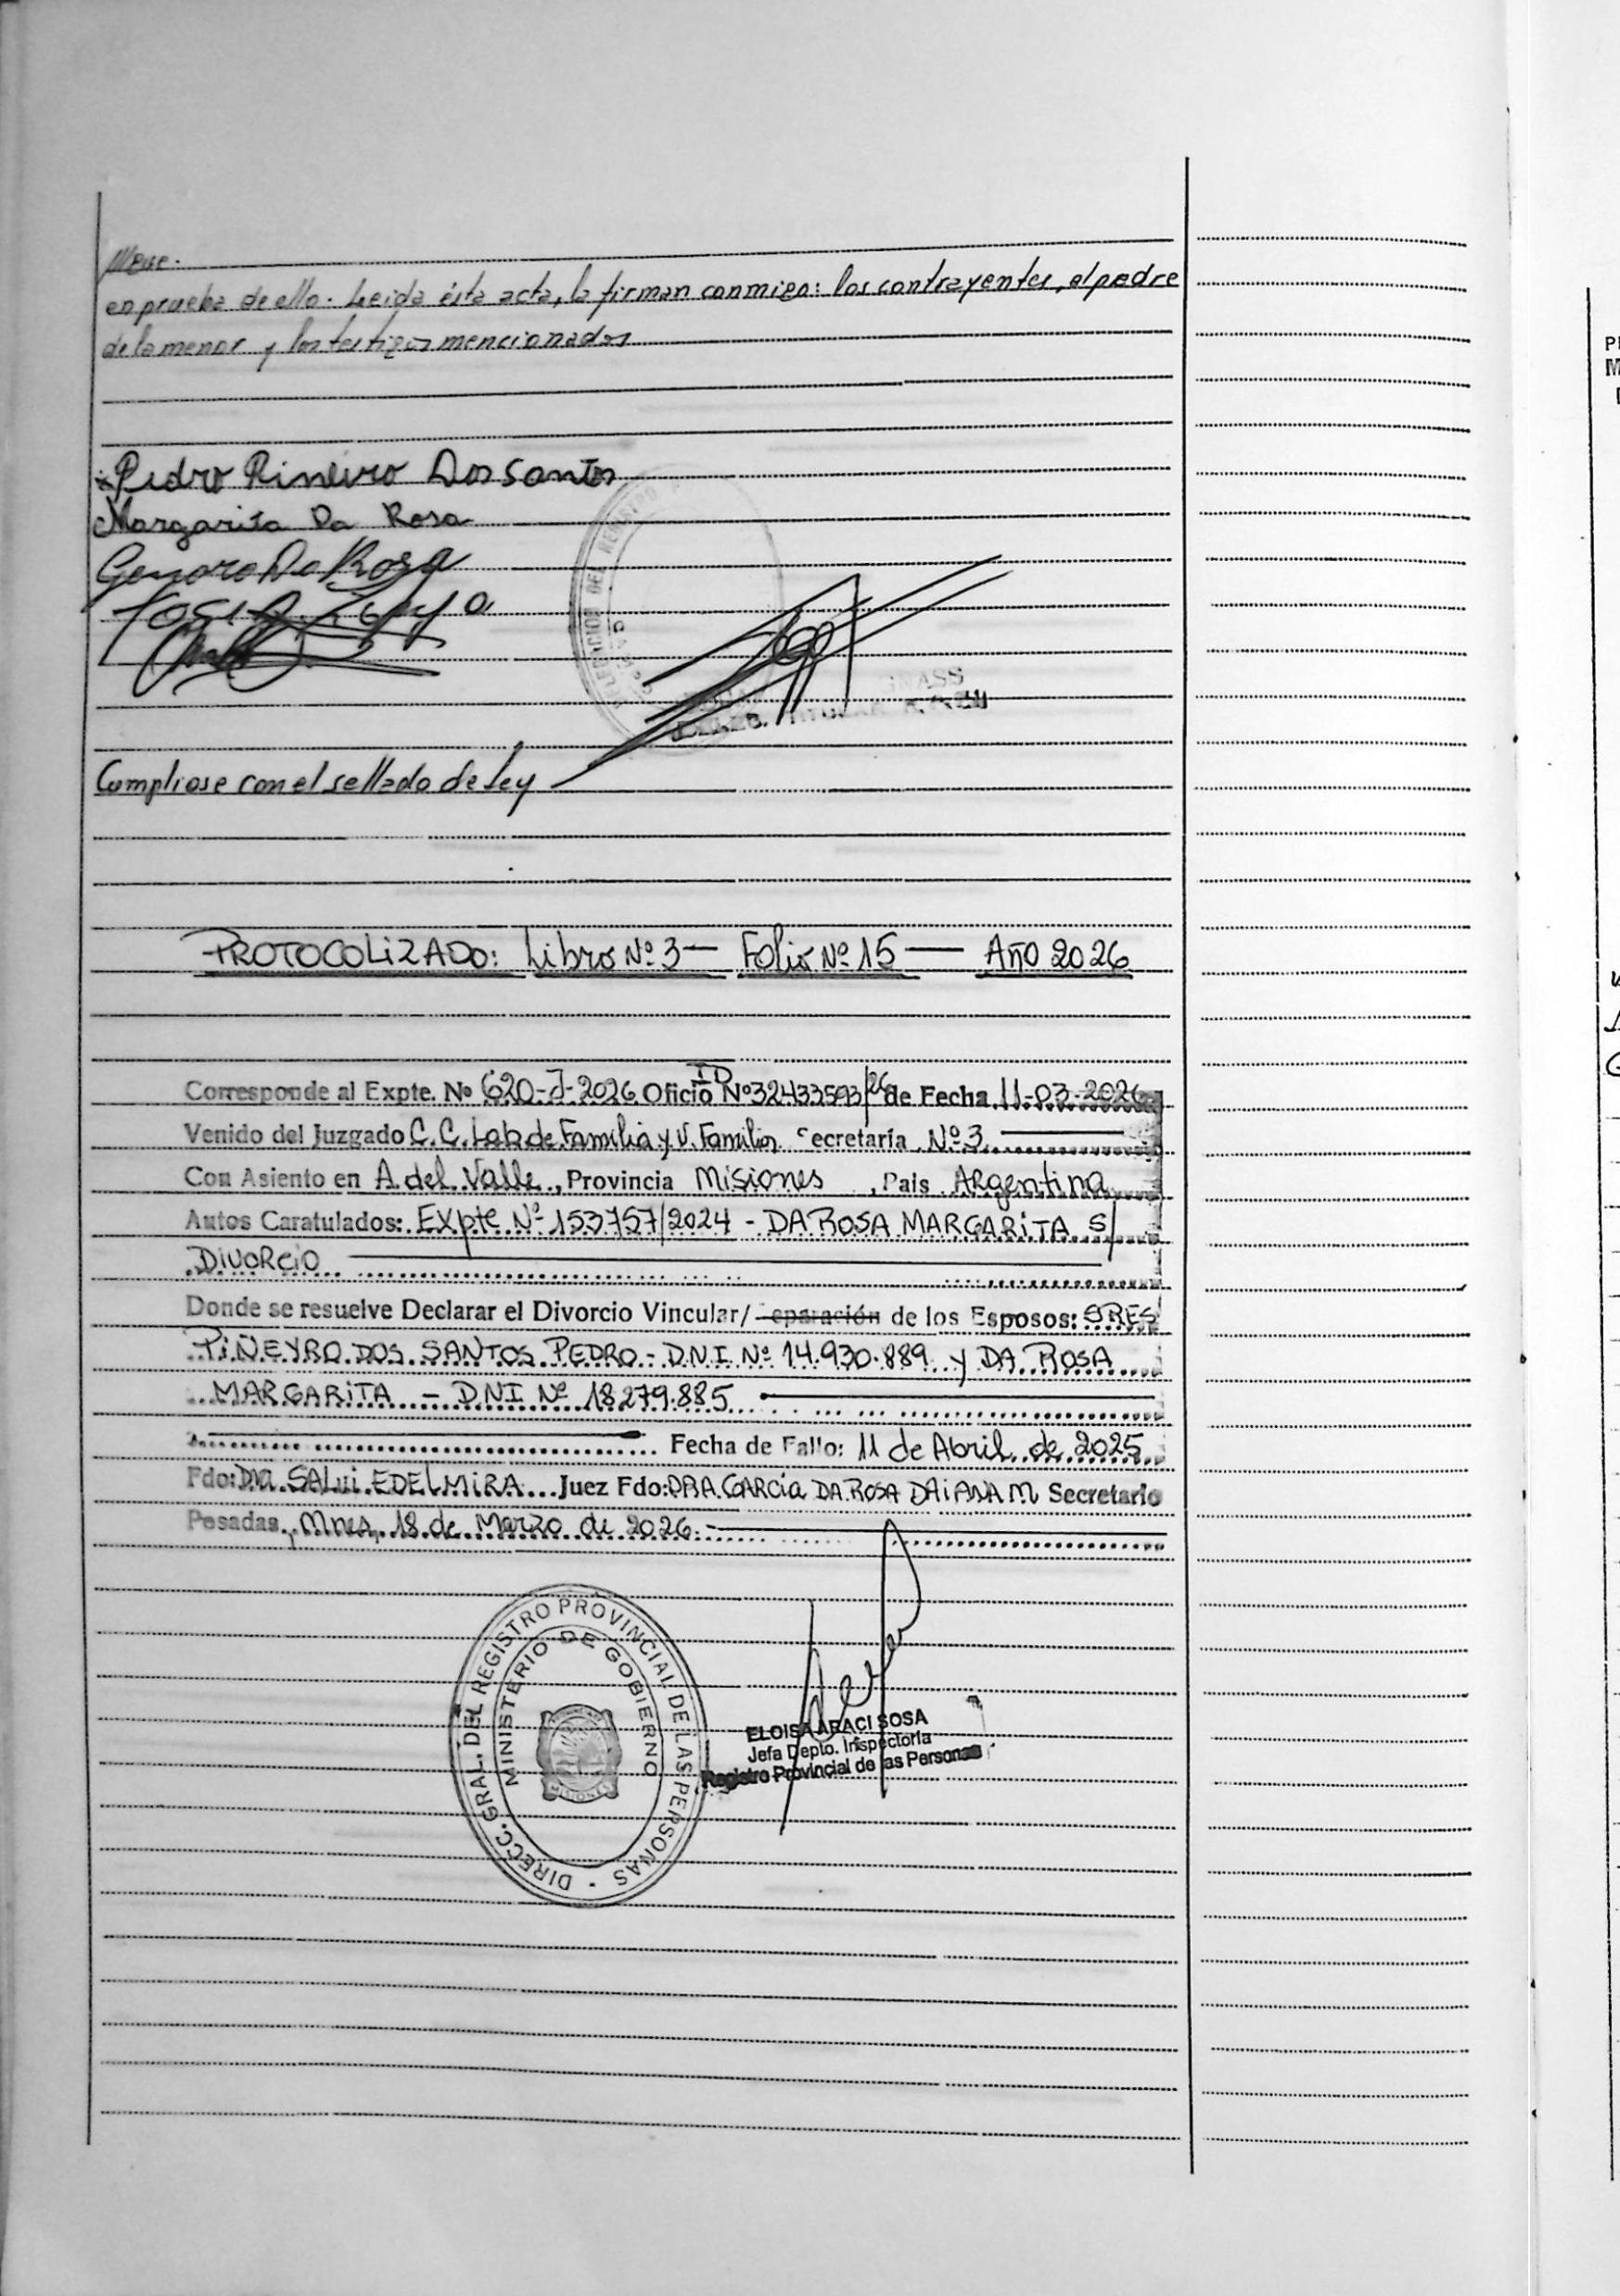 en prueba de ello. Leida ésta acta, la firman conmigo: los contrayentes, el padre
de la menor y los testigos mencionados
Pedro Pineiro Dos Santos
Margarita Da Rosa
Genaro Da Rosa
Cumpliose con el sellado de Ley
PROTOCOLIZADO: Libro Nº 3 — Folio Nº 15 — AÑO 2026
Corresponde al Expte. Nº 620-J-2026 Oficio ID Nº 32433593/26 de Fecha 11-03-2026
Venido del Juzgado C.C. Lab de Familia y V. Familiar Secretaría Nº 3
Con Asiento en A. del Valle, Provincia Misiones, Pais Argentina
Autos Caratulados: Expte Nº 153757/2024 - DA ROSA MARGARITA S/
DIVORCIO
Donde se resuelve Declarar el Divorcio Vincular/ eparación de los Esposos: SRES
PIÑEYRO DOS SANTOS PEDRO - D.N.I. Nº 14.930.889 y DA ROSA
MARGARITA - DNI Nº 18279.885
Fecha de Fallo: 11 de Abril de 2025
Fdo: Dra. SALUI EDELMIRA Juez Fdo: DRA. GARCIA DA ROSA DAIANA M Secretario
Posadas, Mnes, 18 de Marzo de 2026.-
DIRECC. GRAL. DEL REGISTRO PROVINCIAL DE LAS PERSONAS
MINISTERIO DE GOBIERNO
ELOISA ARACI SOSA
Jefa Depto. Inspectoría
Registro Provincial de las Personas